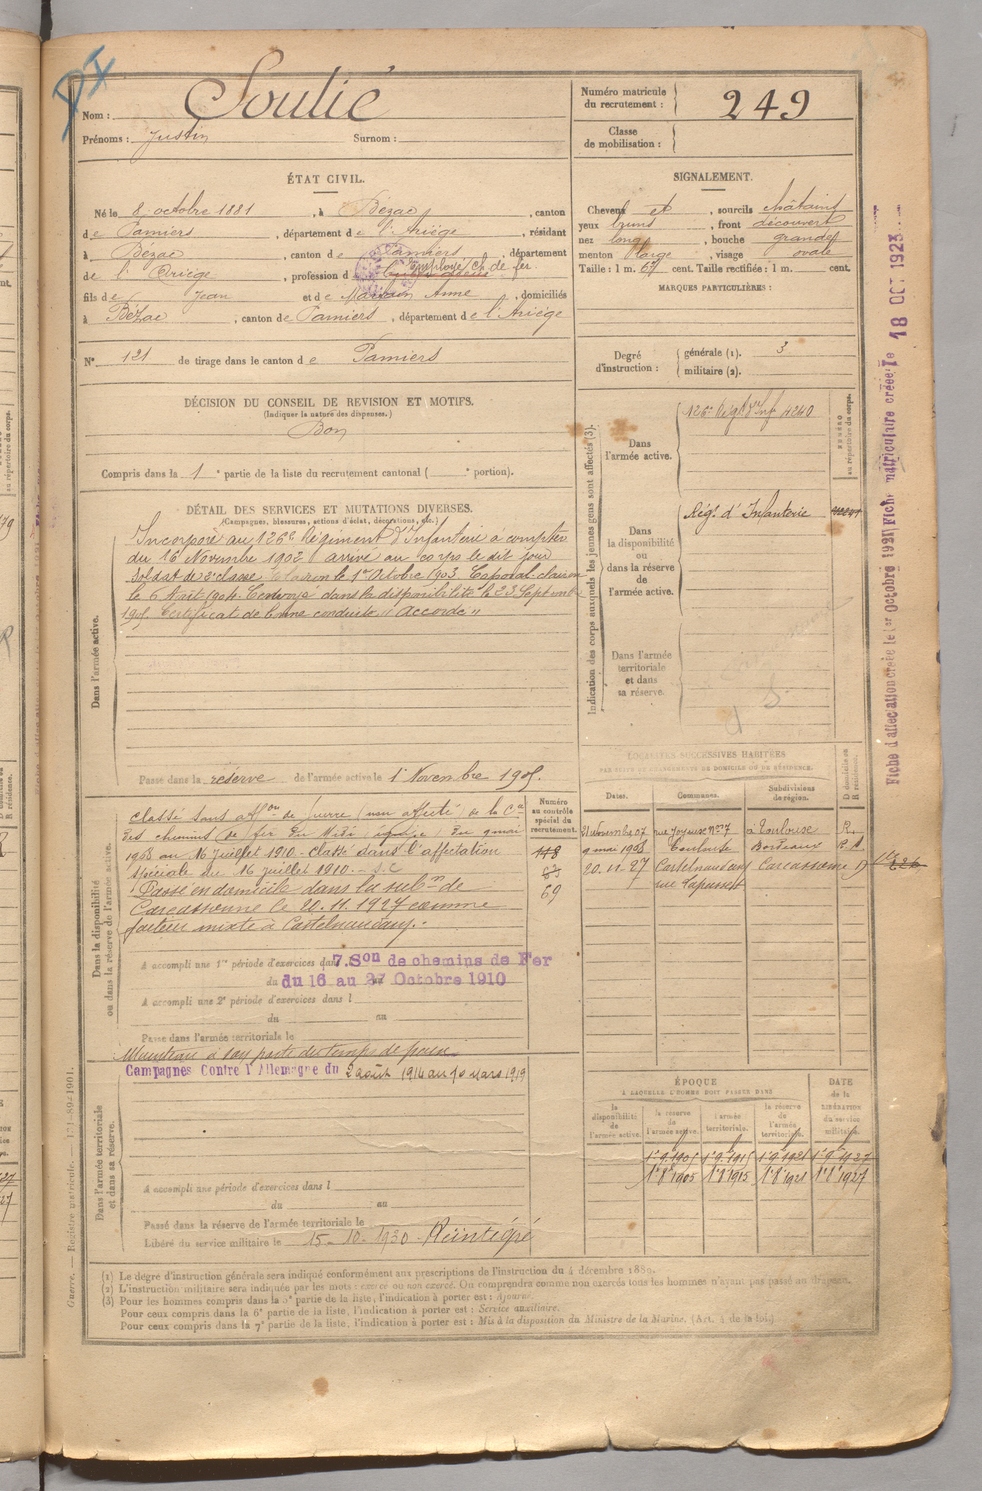 PI
Nom : Soulié
Prénoms : Justin Surnom :
Numéro matricule
du recrutement : 249
Classe
de mobilisation :
ÉTAT CIVIL.
Né le 8 octobre 1881, à Bézac, canton
de Pamiers, département de l'Ariège, résidant
à Bézac, canton de Pamiers, département
de l'Ariège, profession d employé ch. de fer
fils de Jean et de Anne, domiciliés
à Bézac, canton de Pamiers, département de l'Ariège
N° 121 de tirage dans le canton de Pamiers
SIGNALEMENT.
Cheveux et, sourcils châtains
yeux bruns, front découvert
nez long, bouche grande
menton large, visage ovale
Taille : 1 m. 67 cent. Taille rectifiée : 1 m. cent.
MARQUES PARTICULIÈRES :
Degré
d'instruction :
générale (1). 3
militaire (2).
DÉCISION DU CONSEIL DE REVISION ET MOTIFS.
(Indiquer la nature des dispenses.)
Bon
Compris dans la 1e partie de la liste du recrutement cantonal ( e portion).
DÉTAIL DES SERVICES ET MUTATIONS DIVERSES.
(Campagnes, blessures, actions d'éclat, décorations, etc.)
Dans l'armée active.
Incorporé au 126e Régiment d'Infanterie à compter
du 16 Novembre 1902 arrivé au corps le dit jour
Soldat de 2e classe Clairon le 1er Octobre 1903. Caporal clairon
le 6 Août 1904. Renvoyé dans la disponibilité le 23 Septembre
1905. Certificat de bonne conduite "Accordé"
Passé dans la réserve de l'armée active le 1 Novembre 1905.
Indication des corps auxquels les jeunes gens sont affectés (3).
Dans
l'armée active.
126e Régt d'Inf 4240
NUMÉRO
au répertoire du corps.
Dans
la disponibilité
ou
dans la réserve
de
l'armée active.
Régt d'Infanterie
Dans l'armée
territoriale
et dans
sa réserve.
Dans la disponibilité
ou dans la réserve de l'armée active.
Numéro
au contrôle
spécial du
recrutement.
118
63
69
Classé dans aff.on de guerre (non affecté) de la Cie
des chemins de fer du Midi du 9 mai
1908 au 16 juillet 1910 - Classé dans l'affectation
spéciale du 16 juillet 1910. - S.C
Passé en domicile dans la subon de
Carcassonne le 20.11.1927 comme
facteur mixte à Castelnaudary.
A accompli une 1re période d'exercices dans 7. Son de chemins de Fer
du 16 au 27 Octobre 1910
A accompli une 2e période d'exercices dans l
du au
Passé dans l'armée territoriale le
Maintenu à son poste du temps de paix
LOCALITÉS SUCCESSIVES HABITÉES
PAR SUITE DE CHANGEMENTS DE DOMICILE OU DE RÉSIDENCE.
Dates. Communes. Subdivisions de région. D domicile ou R résidence.
21 Novembre 07 rue Joyeuse n° 7 à Toulouse R.
9 mai 1908 Toulouse Bordeaux R.A.
20.11.27 Castelnaudary Carcassonne D
rue
Dans l'armée territoriale
et dans sa réserve.
Campagnes Contre l'Allemagne du 2 août 1914 au 10 mars 1919
A accompli une période d'exercices dans l
du au
Passé dans la réserve de l'armée territoriale le
Libéré du service militaire le 15-10-1930 - Réintégré
ÉPOQUE
À LAQUELLE L'HOMME DOIT PASSER DANS
DATE
de la
LIBÉRATION
du service
militaire.
la
disponibilité
de
l'armée active.
la réserve
de
l'armée active.
l'armée
territoriale.
la réserve
de
l'armée
territoriale.
1er 9bre 1905 1er 9bre 1915 1er 9bre 1921 1er 9bre 1927
1er 8bre 1905 1er 8bre 1915 1er 8bre 1921 1er 8bre 1927
(1) Le degré d'instruction générale sera indiqué conformément aux prescriptions de l'instruction du 4 décembre 1889.
(2) L'instruction militaire sera indiquée par les mots : exercé ou non exercé. On comprendra comme non exercés tous les hommes n'ayant pas passé au drapeau.
(3) Pour les hommes compris dans la 5e partie de la liste, l'indication à porter est : Ajourné.
Pour ceux compris dans la 6e partie de la liste, l'indication à porter est : Service auxiliaire.
Pour ceux compris dans la 7e partie de la liste, l'indication à porter est : Mis à la disposition du Ministre de la Marine. (Art. 4 de la loi.)
Guerre. — Registre matricule. — 171-89-1901.
Fiche d'affectation créée le 1er Octobre 1921 Fiche matriculaire créée le 18 OCT 1923